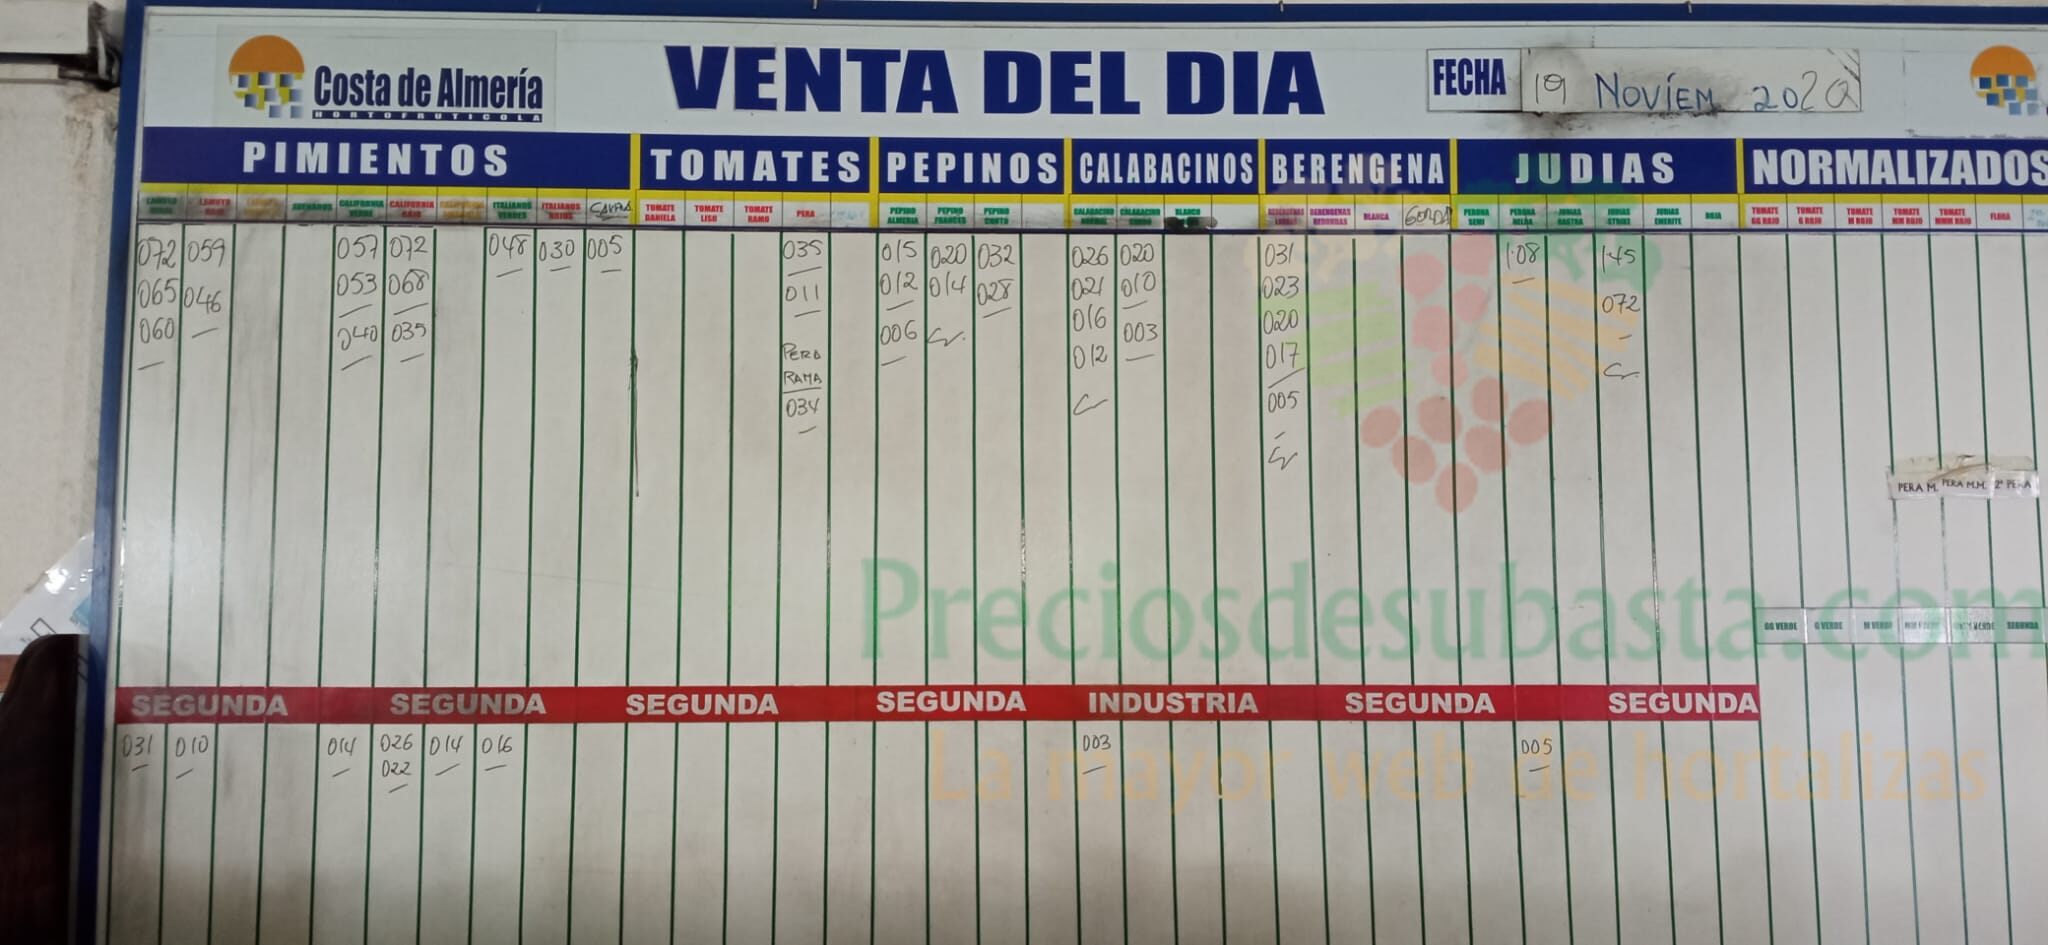 Costa de Almería
HORTOFRUTICOLA
VENTA DEL DIA
FECHA 19 NOVIEM 2020
PIMIENTOS TOMATES PEPINOS CALABACINOS BERENGENA JUDIAS NORMALIZADOS
LAMUYO ASURADOS CALIFORNIA VERDE CALIFORNIA ROJO ITALIANOS VERDES ITALIANOS ROJOS TOMATE DANIELA TOMATE LISO TOMATE RAMO PERA PEPINO ALMERIA PEPINO FRANCES PEPINO CORTO BLANCO BERENGENAS REDONDAS BLANCA GORDA PERONA SEMI PERONA JUDIAS RASTRA JUDIAS STRIKE JUDIAS EMERITE ROJA TOMATE GG ROJO TOMATE G ROJO TOMATE M ROJO TOMATE MM ROJO TOMATE MMM ROJO FLORA
072 059 057 072 048 030 005 035 015 020 032 026 020 031 1.08 1.45
065 046 053 068 011 012 014 028 021 010 023 072
060 040 035 006 016 003 020
012 017
PERA
RAMA
034 005
PERA M. PERA M.M. 2ª PERA
Preciosdesubasta.com
GG VERDE G VERDE M VERDE SEGUNDA
SEGUNDA SEGUNDA SEGUNDA SEGUNDA INDUSTRIA SEGUNDA SEGUNDA
031 010 014 026 014 016 003 005
022
La mayor web de hortalizas